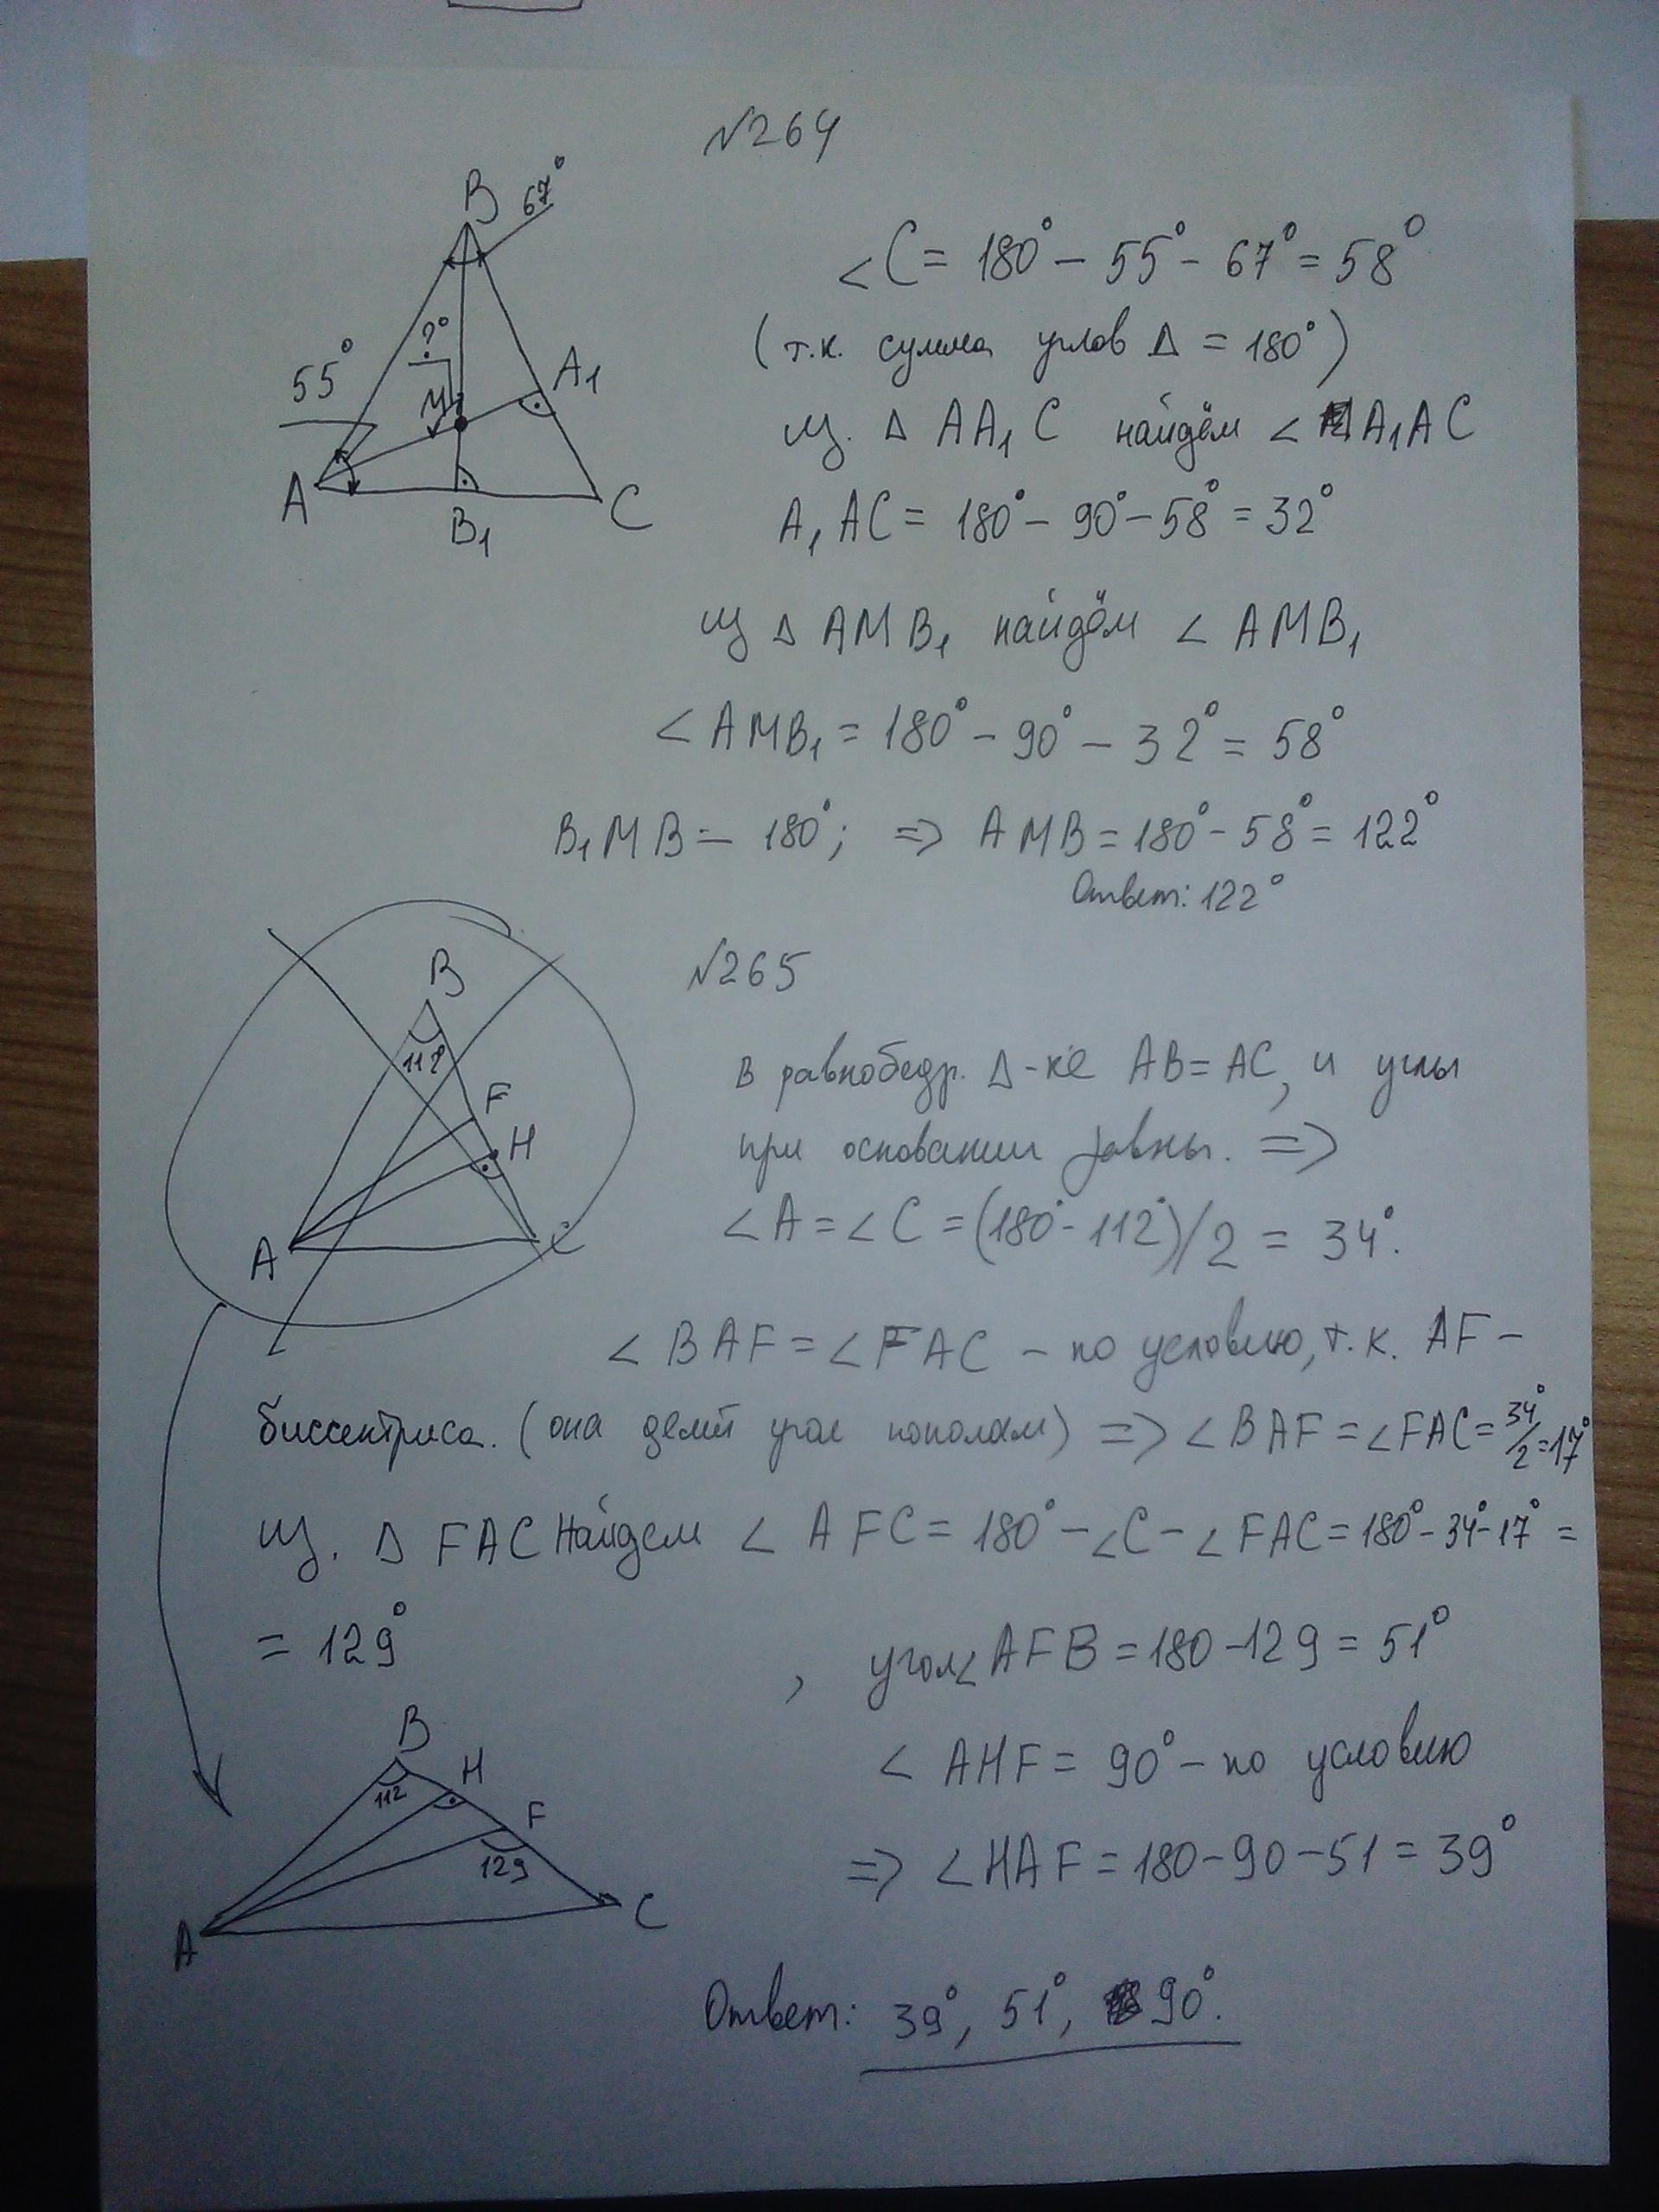 №264
B 67°
∠C = 180° - 55° - 67° = 58°
(т.к. сумма углов Δ = 180°)
55° ?° M A₁
из. Δ AA₁C найдём ∠ A₁AC
A B₁ C
A₁AC = 180° - 90° - 58° = 32°
из Δ AMB₁ найдём ∠ AMB₁
∠AMB₁ = 180° - 90° - 32° = 58°
B₁MB = 180°; => AMB = 180° - 58° = 122°
Ответ: 122°
№265
B
112
F
H
A C
в равнобедр. Δ-ке AB = AC, и углы
при основании равны. =>
∠A = ∠C = (180° - 112°)/2 = 34°.
∠BAF = ∠FAC - по условию, т.к. AF -
биссектриса. (она делит угол пополам) => ∠BAF = ∠FAC = 34°/2 = 17°
из. Δ FAC Найдем ∠ AFC = 180° - ∠C - ∠FAC = 180° - 34° - 17° =
= 129° , угол∠AFB = 180 - 129 = 51°
∠ AHF = 90° - по условию
=> ∠HAF = 180 - 90 - 51 = 39°
B
112
H
F
129
A C
Ответ: 39°, 51°, 90°.